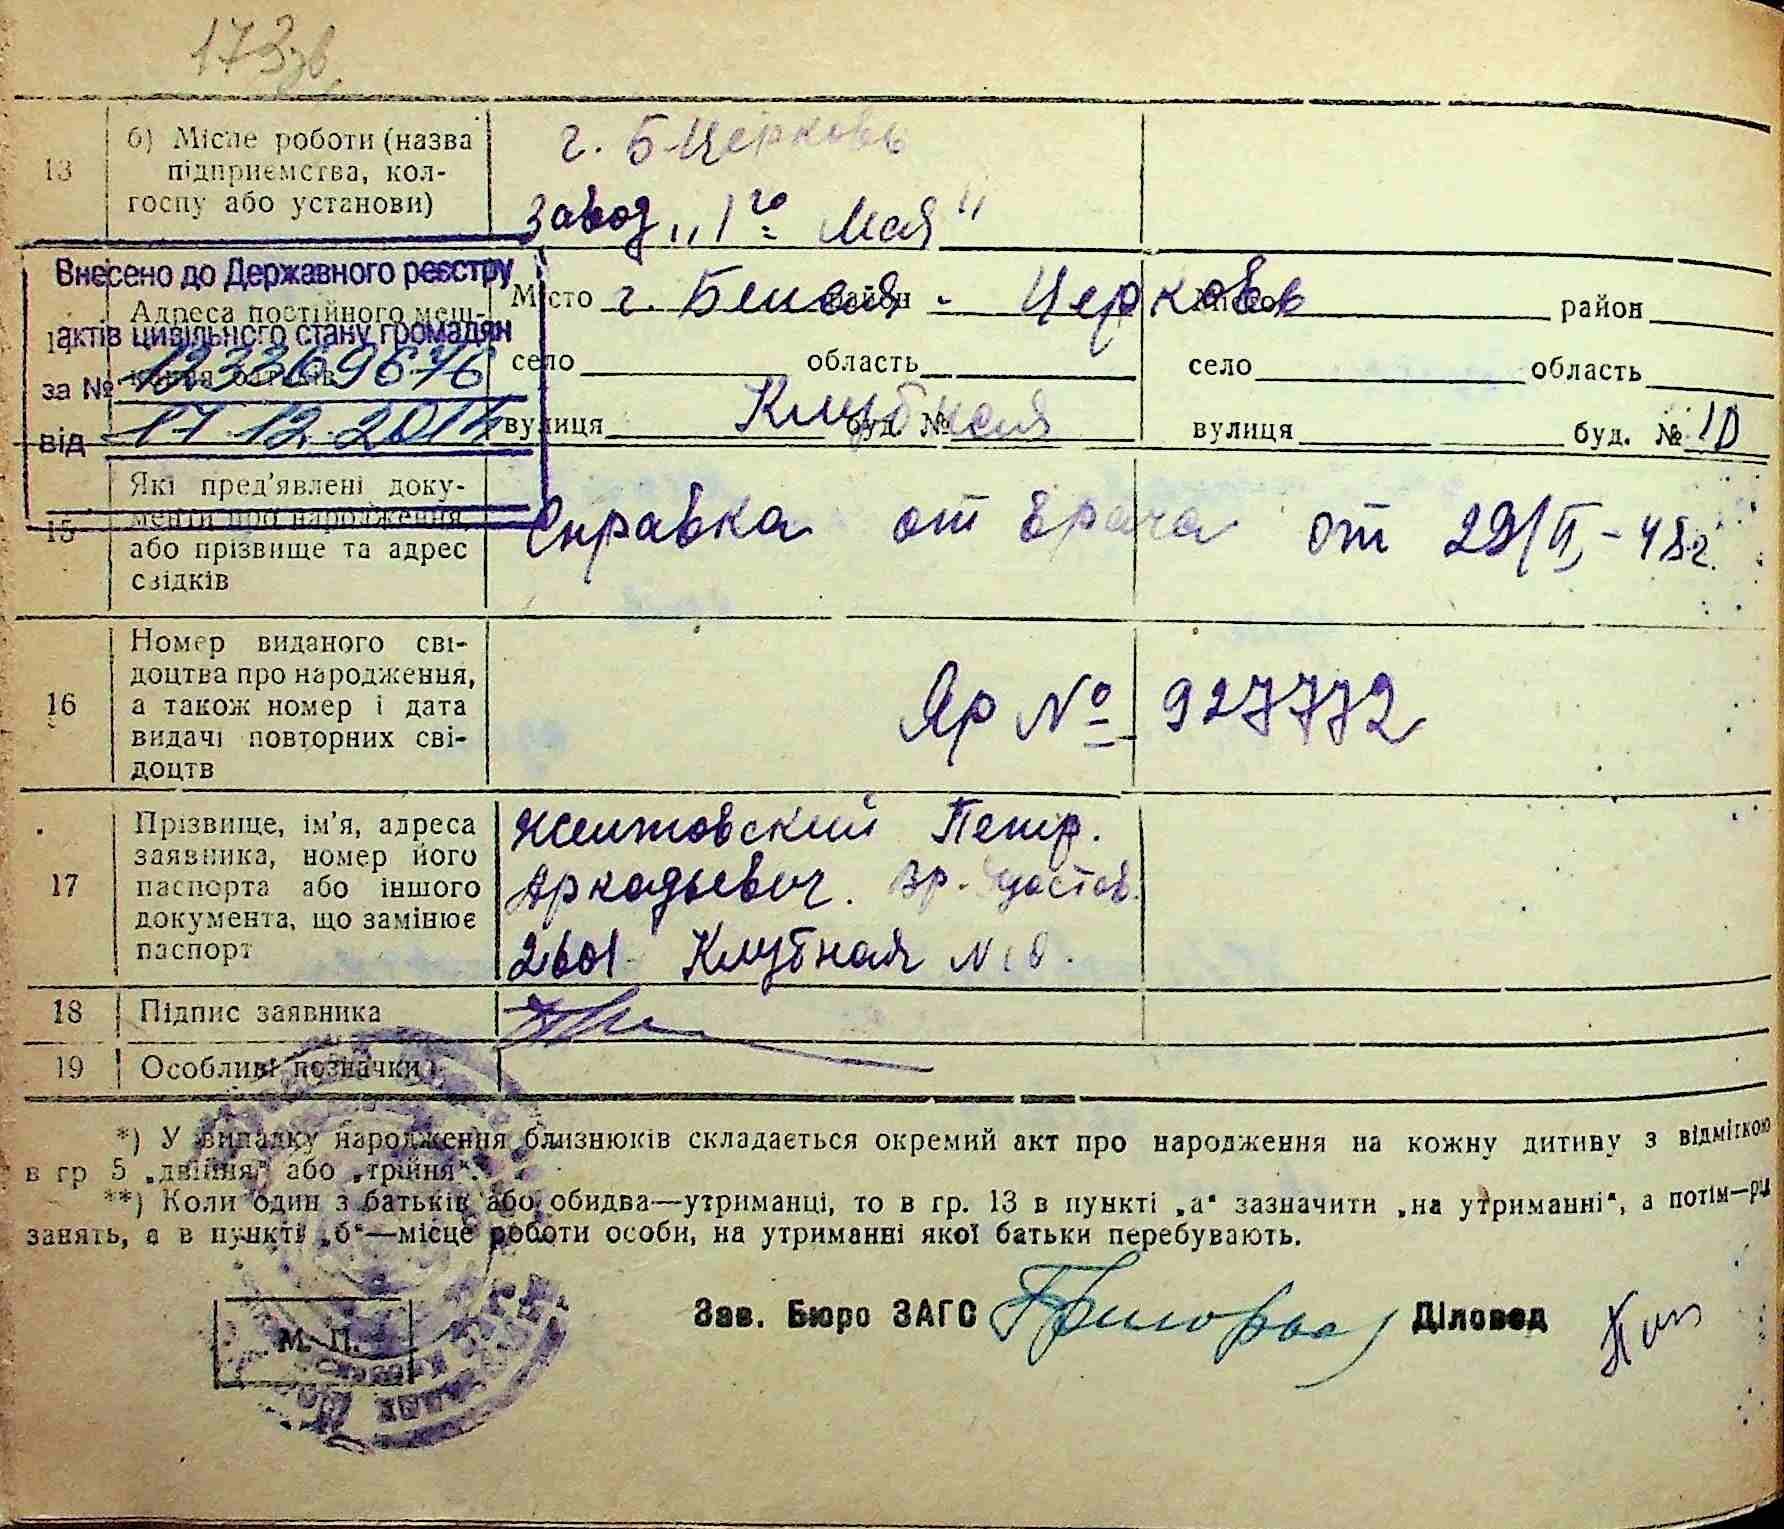 173зв.
13
б) Місце роботи (назва
підприємства, кол-
госпу або установи)
г. Б-Церковь
завод „1го Мая"
Внесено до Державного реєстру
актів цивільного стану громадян
за № 123369676
від 17.12.2014
14
Адреса постійного меш-
кання батьків
Місто г. Белая - Церковь район
село область
вулиця Клубная буд. №
Місто район
село область
вулиця буд. № 10
15
Які пред'явлені доку-
менти про народження,
або прізвище та адрес
свідків
Справка от врача от 29/II-48г.
16
Номер виданого сві-
доцтва про народження,
а також номер і дата
видачі повторних сві-
доцтв
Яр № 927772
17
Прізвище, ім'я, адреса
заявника, номер його
паспорта або іншого
документа, що замінює
паспорт
Житовский Петр.
Аркадьевич. Вр.
2601 Клубная N10.
18
Підпис заявника
19
Особливі позначки
*) У випадку народження близнюків складається окремий акт про народження на кожну дитину з відміткою
в гр 5 „двійня" або „трійня".
**) Коли один з батьків або обидва—утриманці, то в гр. 13 в пункті „а" зазначити „на утриманні", а потім—рід
занять, а в пункті „б"—місце роботи особи, на утриманні якої батьки перебувають.
Зав. Бюро ЗАГС
Діловод
М. П.